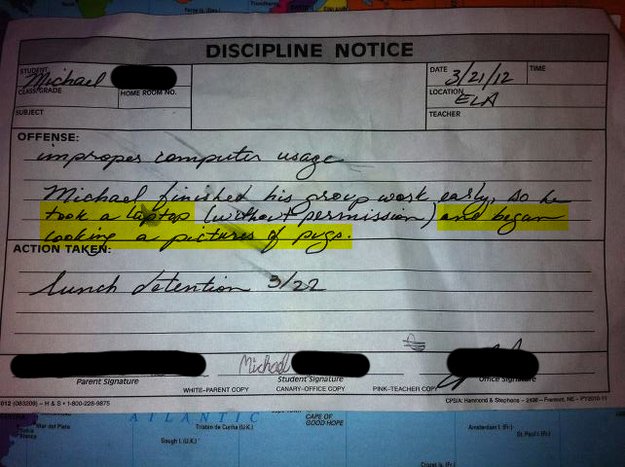 DISCIPLINE NOTICE
STUDENT
Michael
DATE 3/21/12
TIME
CLASS/GRADE
HOME ROOM NO.
LOCATION
ELA
SUBJECT
TEACHER
OFFENSE:
improper computer usage
Michael finished his group work early, so he
took a laptop (without permission) and began
looking a pictures of pugs.
ACTION TAKEN:
lunch detention 3/22
Michael
Parent Signature
Student Signature
Office Signature
WHITE–PARENT COPY
CANARY–OFFICE COPY
PINK–TEACHER COPY
012 (083209) – H & S • 1-800-228-9875
CPSIA: Hammond & Stephens – 2436 – Fremont, NE – PY2010-11
ATLANTIC
Mar del Plata
Tristan da Cunha (U.K.)
CAPE OF
GOOD HOPE
Gough I. (U.K.)
Amsterdam I. (Fr.)
St. Paul I. (Fr.)
Crozet Is. (Fr.)